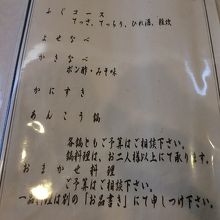 ふぐコース
てっさ、てっちり、ひれ酒、雑炊
よせなべ
かきなべ
ポン酢・みそ味
かにすき
あんこう鍋
各鍋ともご予算はご相談下さい。
鍋料理は、お二人様以上にて承ります。
おまかせ料理
ご予算はご相談下さい。
一品料理は別の「お品書き」にて申しつけ下さい。